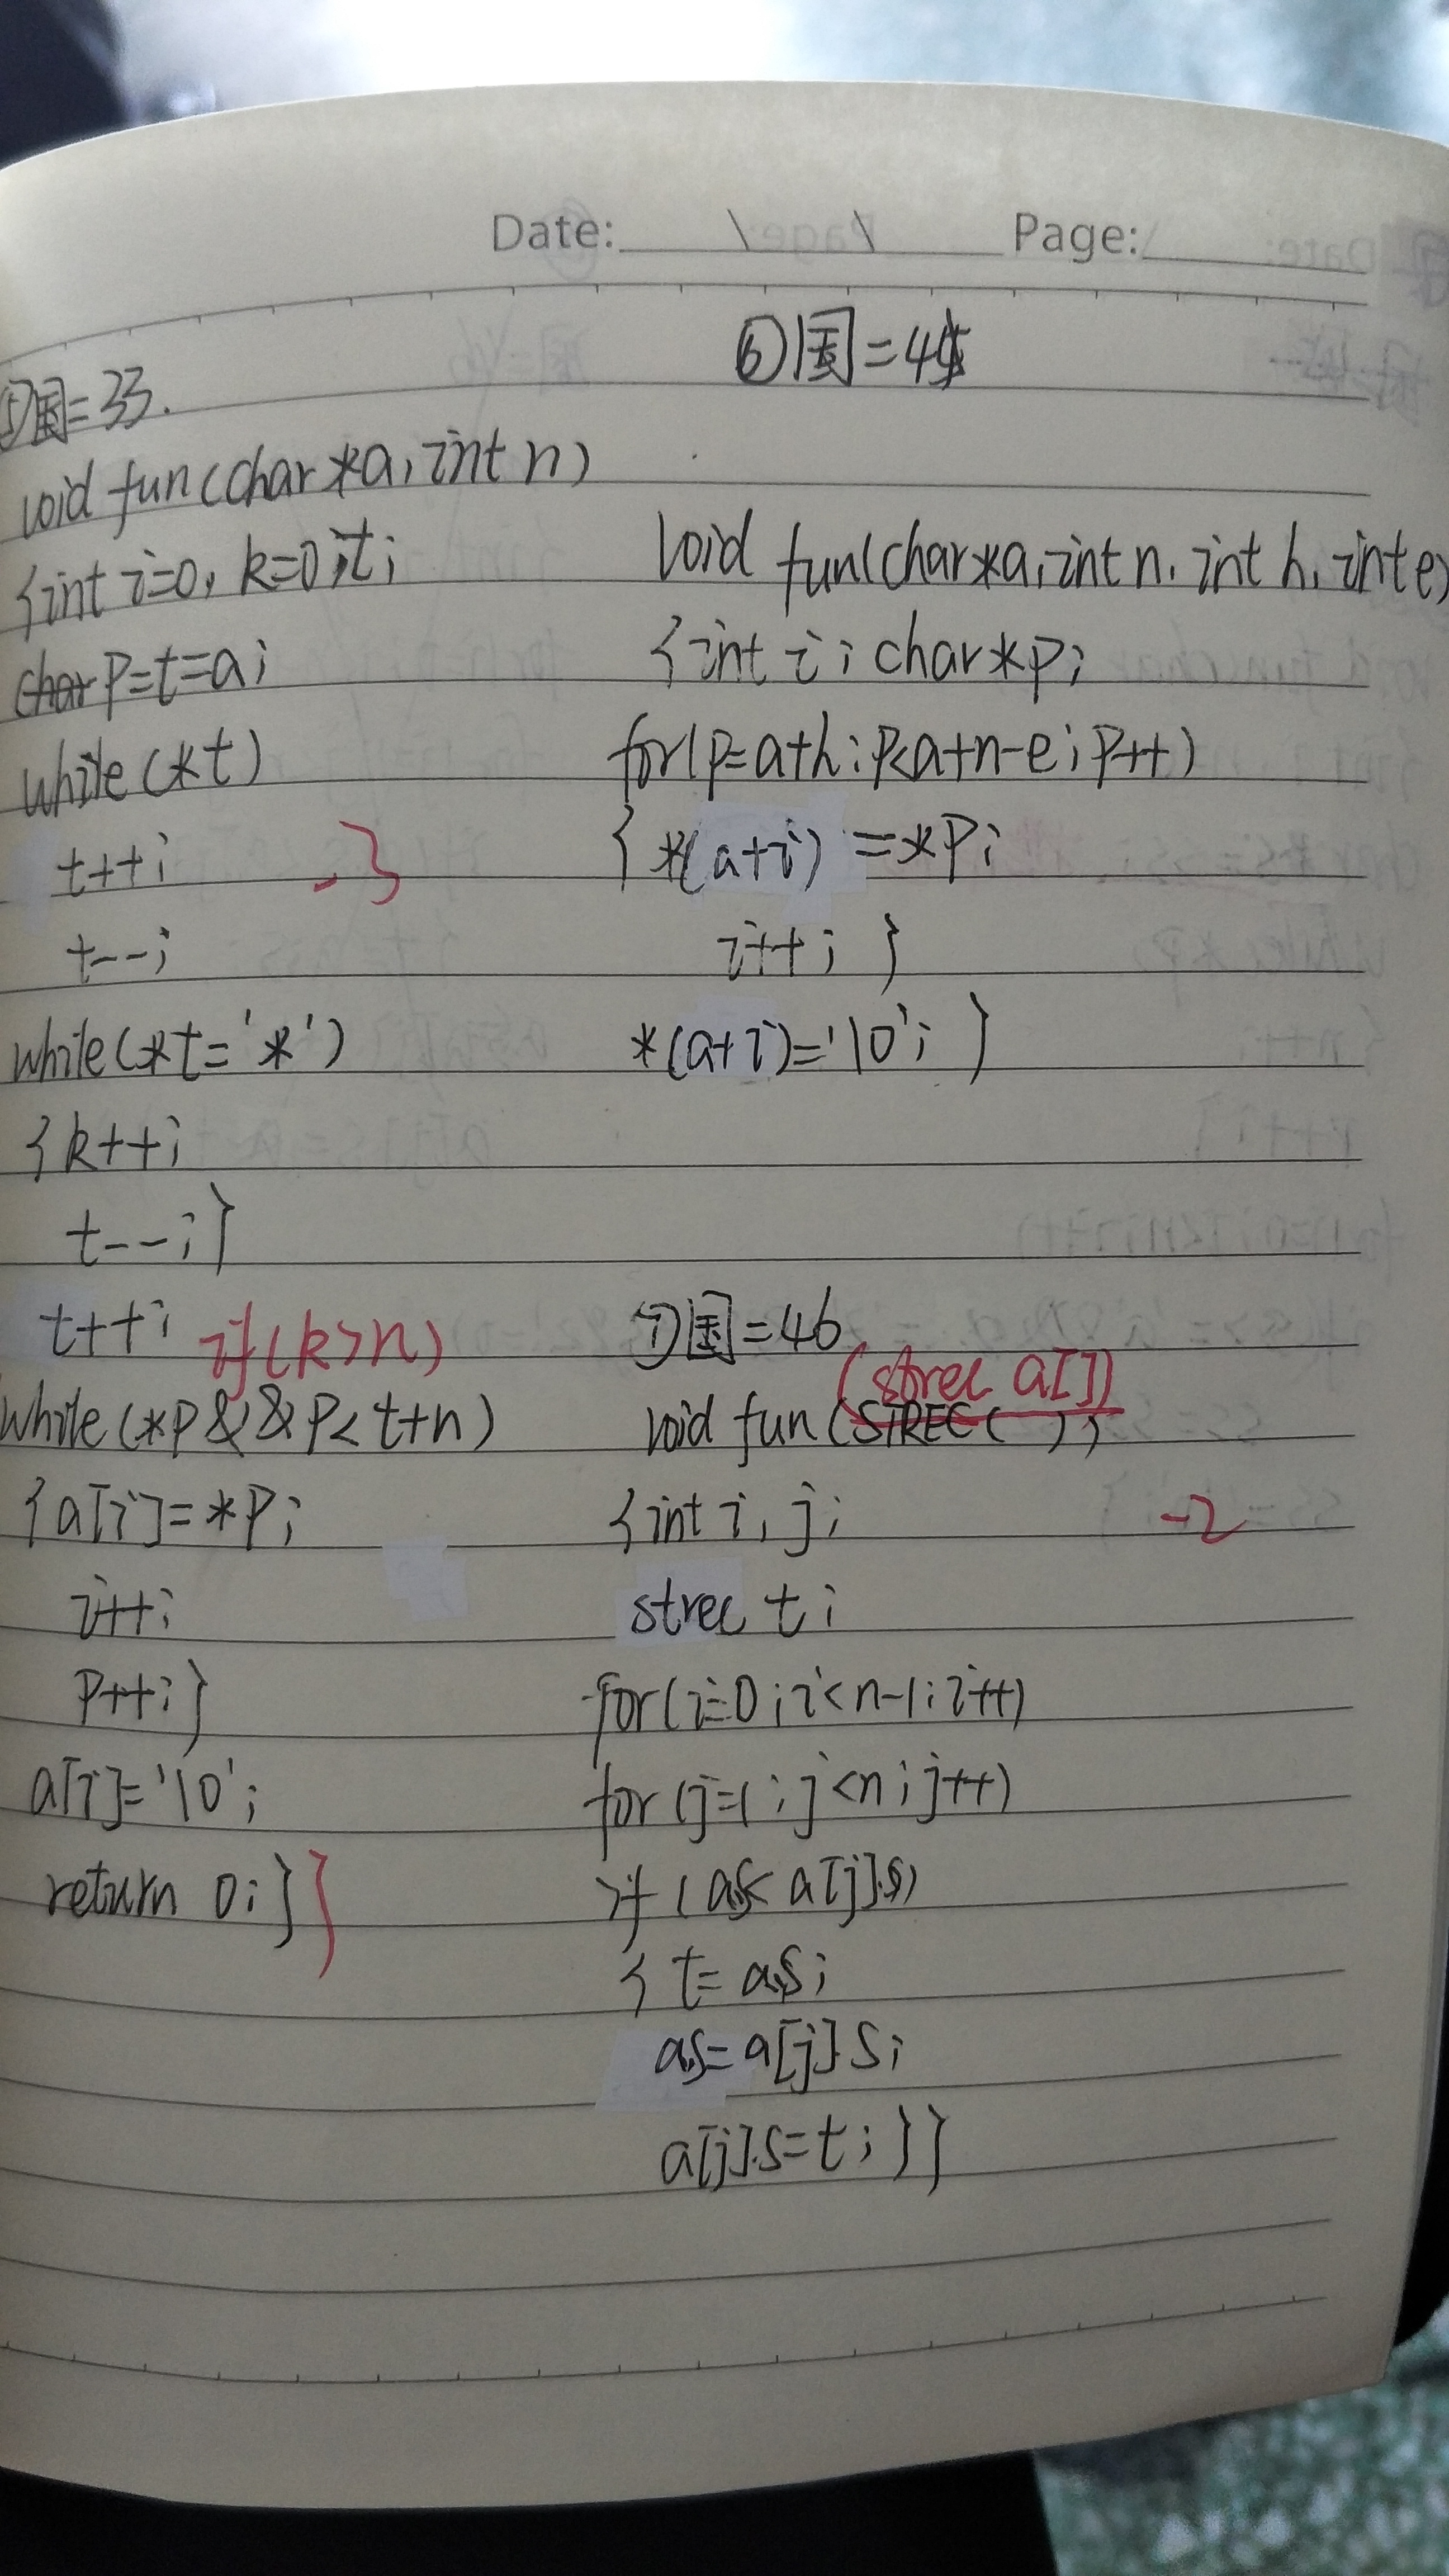 Date: \ \ Page:
⑤国=33.
void fun(char*a,int n)
{int i=0, k=0;t;
char p=t=a;
while(*t)
t++; -3
t--;
while(*t='*')
{k++;
t--;}
t++; if(k>n)
while(*p&&p<t+n)
{a[i]=*p;
i++;
p++;}
a[i]='\0';
return 0;} }
⑥国=45
void fun(char*a,int n,int h,int e)
{int i; char*p;
for(p=a+h;p<a+n-e;p++)
{*(a+i)=*p;
i++; }
*(a+i)='\0'; }
⑦国=46
(strec a[])
void fun(STREC( ))
{int i,j; -2
strec t;
for(i=0;i<n-1;i++)
for(j=1;j<n;j++)
if(a.s<a[j].s)
{t=a.s;
a.s=a[j].s;
a[j].s=t;}}